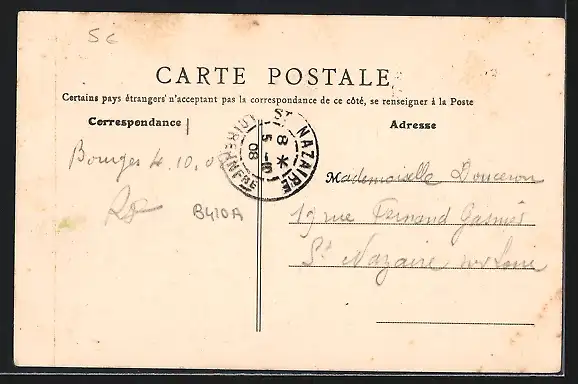 5€
CARTE POSTALE
Certains pays étrangers n'acceptant pas la correspondance de ce côté, se renseigner à la Poste
Correspondance
Adresse
ST NAZAIRE
LOIRE INFRE
8 * 5-10 08
Bourges 4.10.0
Mademoiselle Douceron
B410A
19 rue Fernand Gasnier
St Nazaire sur Loire